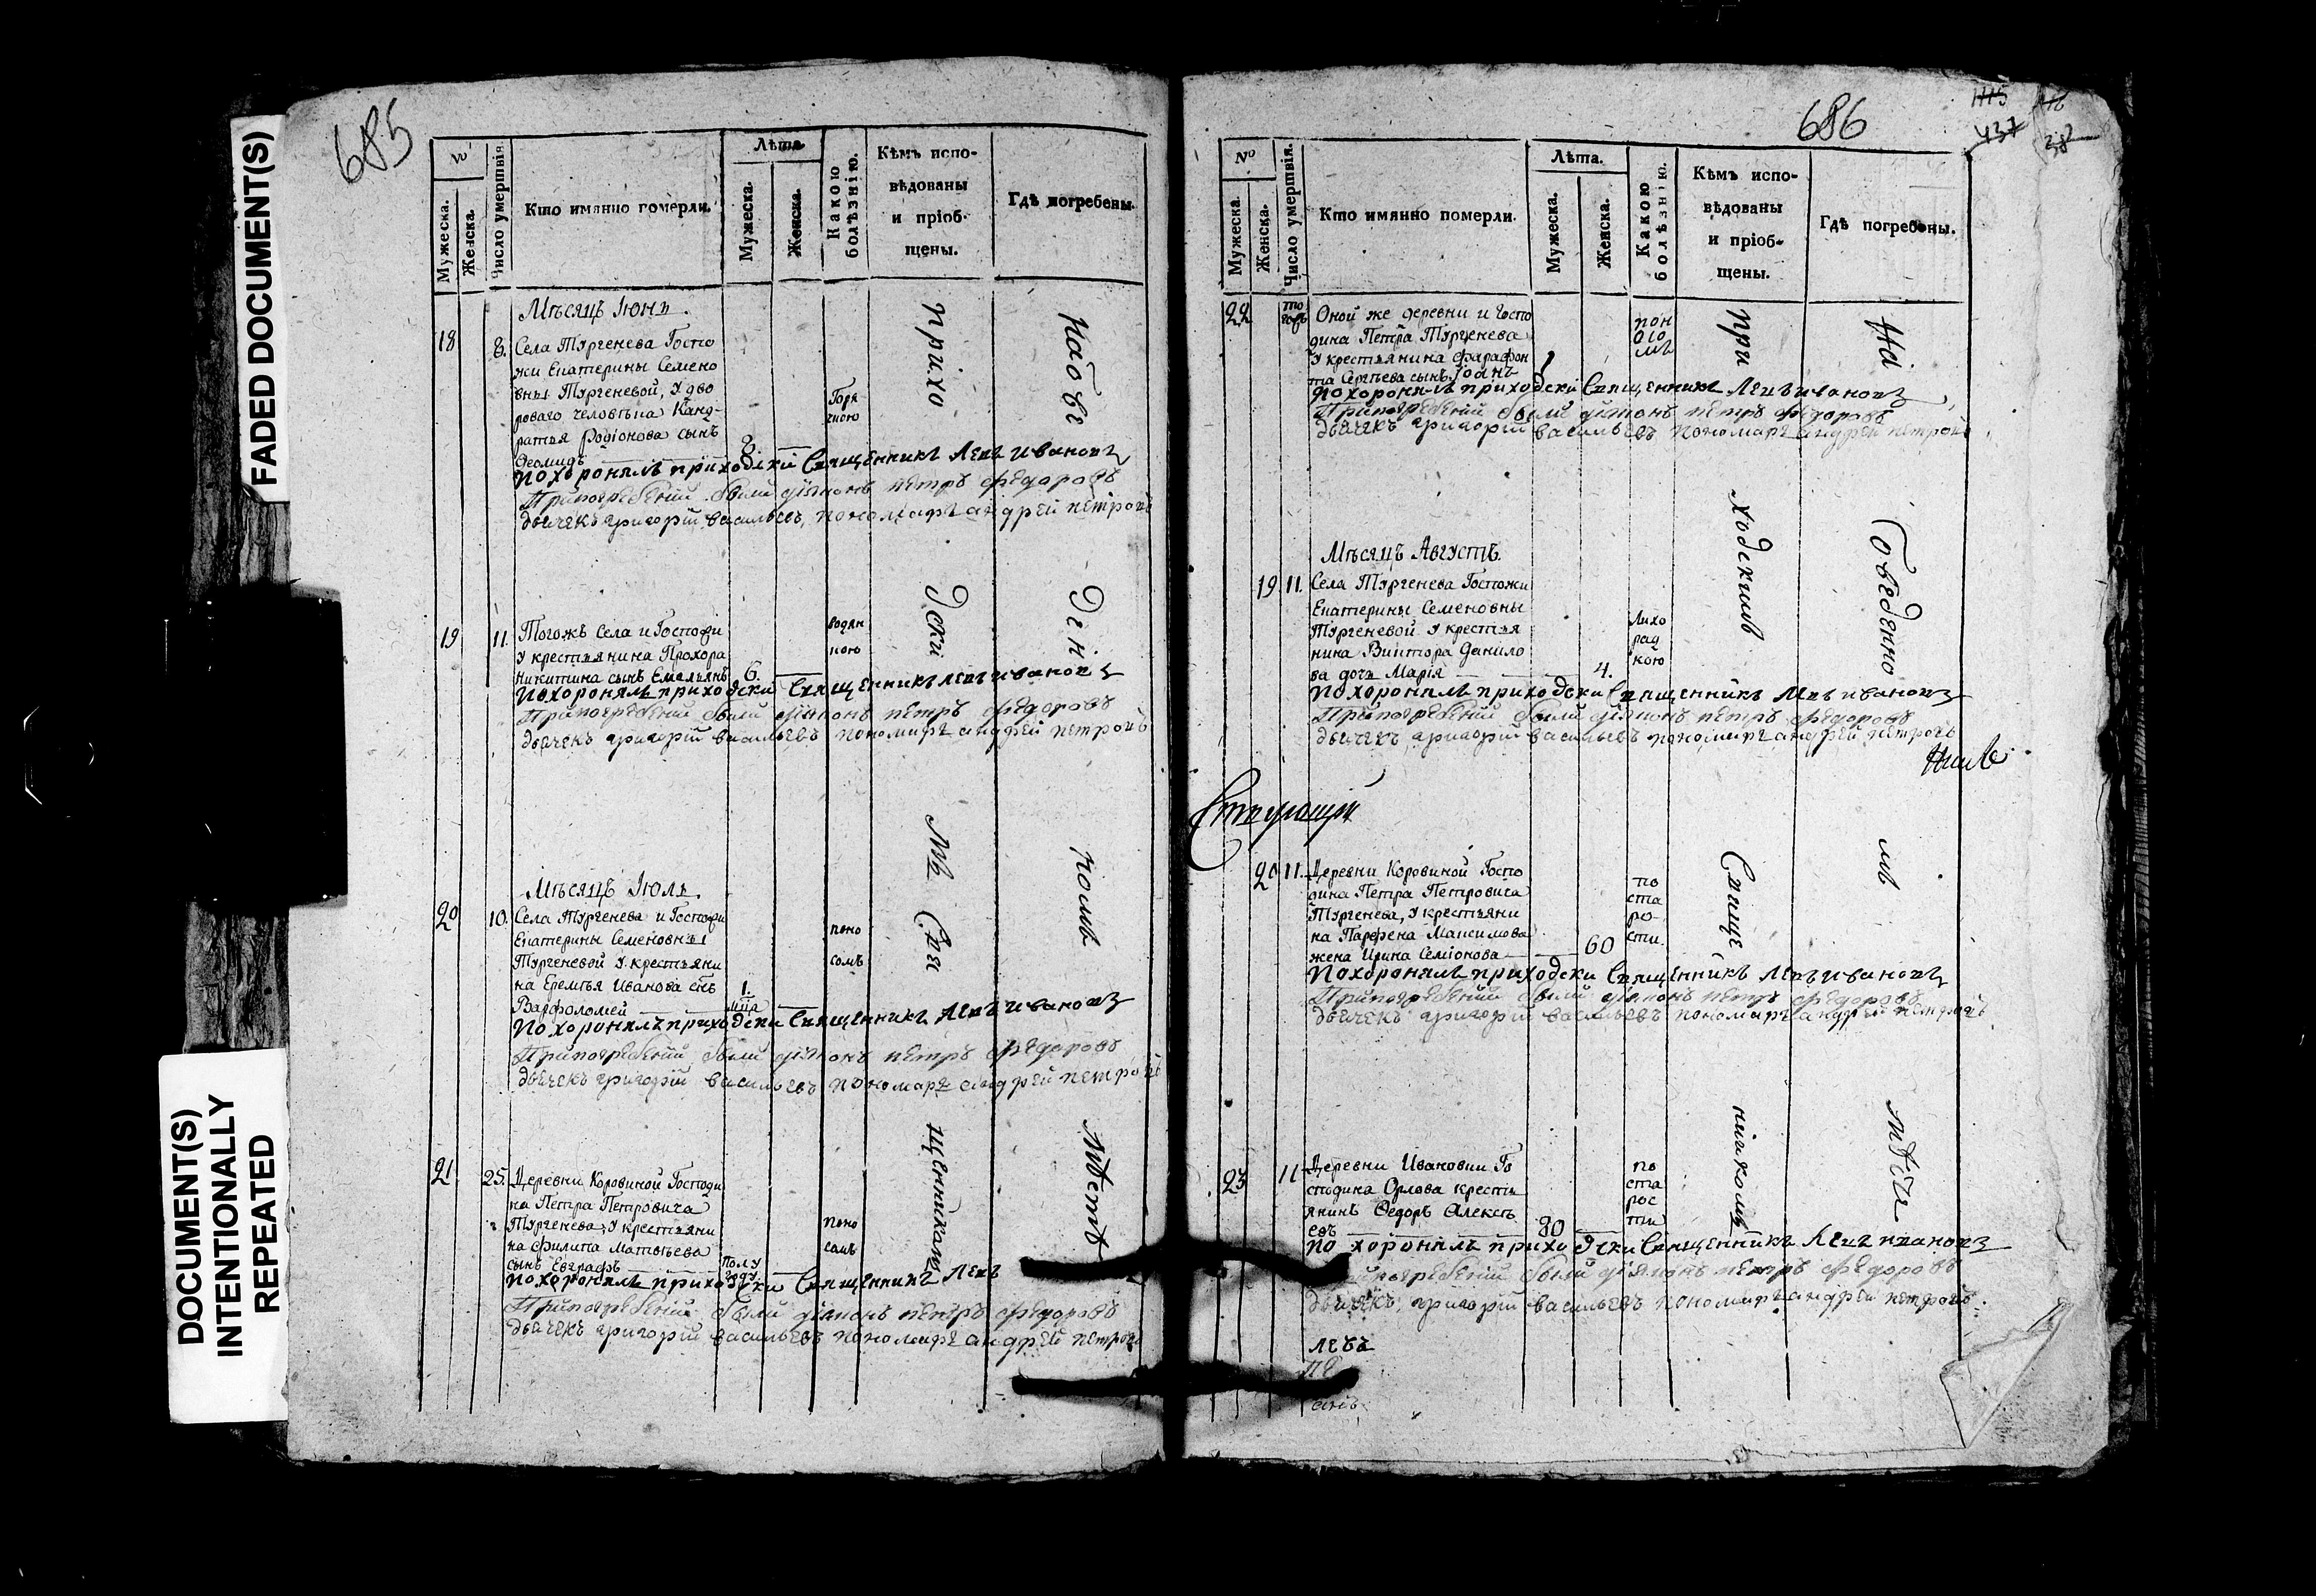 FADED DOCUMENT(S)
DOCUMENT(S)
INTENTIONALLY
REPEATED
685
№
Мужеска.
Женска.
Число умертвія.
Кто имянно померли.
Лѣта.
Мужеска.
Женска.
Какою
болѣзнію.
Кѣмъ испо-
вѣдованы
и пріоб-
щены.
Гдѣ погребены.
Мѣсяцъ Іюнь.
18
8.
Села Тургенева Госпо
жи Екатерины Семено
вны Тургеневой, у дво
роваго человѣка Конд-
ратья Родіонова сынъ
Ѳеомидъ
8.
Горя
чкою
Похоронялъ приходски Священникъ Левъ Ивановъ
При погребеніи были діаконъ Петръ Федоровъ
дьячекъ Григорій Васильевъ, пономарь Андрей Петровъ
19
11.
Тогожъ Села и Госпожи
у крестьянина Прохора
Никитина сынъ Емельянъ
6.
водян
кою
Похоронялъ приходски Священникъ Левъ Ивановъ
При погребеніи были діаконъ Петръ Федоровъ
дьячекъ Григорій Васильевъ пономарь Андрей Петровъ
Мѣсяцъ Іюль.
20
10.
Села Тургенева и Госпожи
Екатерины Семеновны
Тургеневой у крестьяни
на Еремѣя Иванова снъ
Варфоломей
1.
поно
сомъ
Похоронялъ приходски Священникъ Левъ Ивановъ
При погребеніи были діаконъ Петръ Федоровъ
дьячекъ Григорій Васильевъ пономарь Андрей Петровъ
21
25.
Деревни Коровиной Господи
на Петра Петровича
Тургенева, у крестьяни
на Филипа Матвѣева
сынъ Евграфъ
полу
году
поно
сомъ
Похоронялъ приходски Священникъ Левъ
При погребеніи были діаконъ Петръ Федоровъ
дьячекъ Григорій Васильевъ пономарь Андрей Петровъ
Прихо
дски
мъ Свя
щенникомъ
686
437
№
Мужеска.
Женска.
Число умертвія.
Кто имянно померли.
Лѣта.
Мужеска.
Женска.
Какою
болѣзнію.
Кѣмъ испо-
вѣдованы
и пріоб-
щены.
Гдѣ погребены.
22
того
Оной же деревни и Госпо
дина Петра Тургенева
у крестьянина Фарафон
та Сергѣева сынъ Іоанъ
1
Похоронялъ приходски Священникъ Левъ Ивановъ
При погребеніи были діаконъ Петръ Федоровъ
дьячекъ Григорій Васильевъ пономарь Андрей Петровъ
Мѣсяцъ Августъ.
19
11.
Села Тургенева Госпожи
Екатерины Семеновны
Тургеневой у крестья
нина Виктора Данило
ва дочь Марія
4.
Лихо
рад
кою
Похоронялъ приходски Священникъ Левъ Ивановъ
При погребеніи были діаконъ Петръ Федоровъ
дьячекъ Григорій Васильевъ пономарь Андрей Петровъ
20
11.
Деревни Коровиной Госпо
дина Петра Петровича
Тургенева, у крестьяни
на Парфена Максимова
жена Ирина Семіонова
60
по
ста
ро-
сти.
Похоронялъ приходски Священникъ Левъ Ивановъ
При погребеніи были діаконъ Петръ Федоровъ
дьячекъ Григорій Васильевъ пономарь Андрей Петровъ
23
11
Деревни Ивановки Го
сподина Орлова кресть
янинъ Ѳедоръ Алексѣ
евъ
80
по
ста
рос
ти
Похоронялъ приходски Священникъ Левъ Ивановъ
погребеніи были діаконъ Петръ Федоровъ
дьячекъ Григорій Васильевъ пономарь Андрей Петровъ
При
ходскимъ
Свяще
нникомъ
На